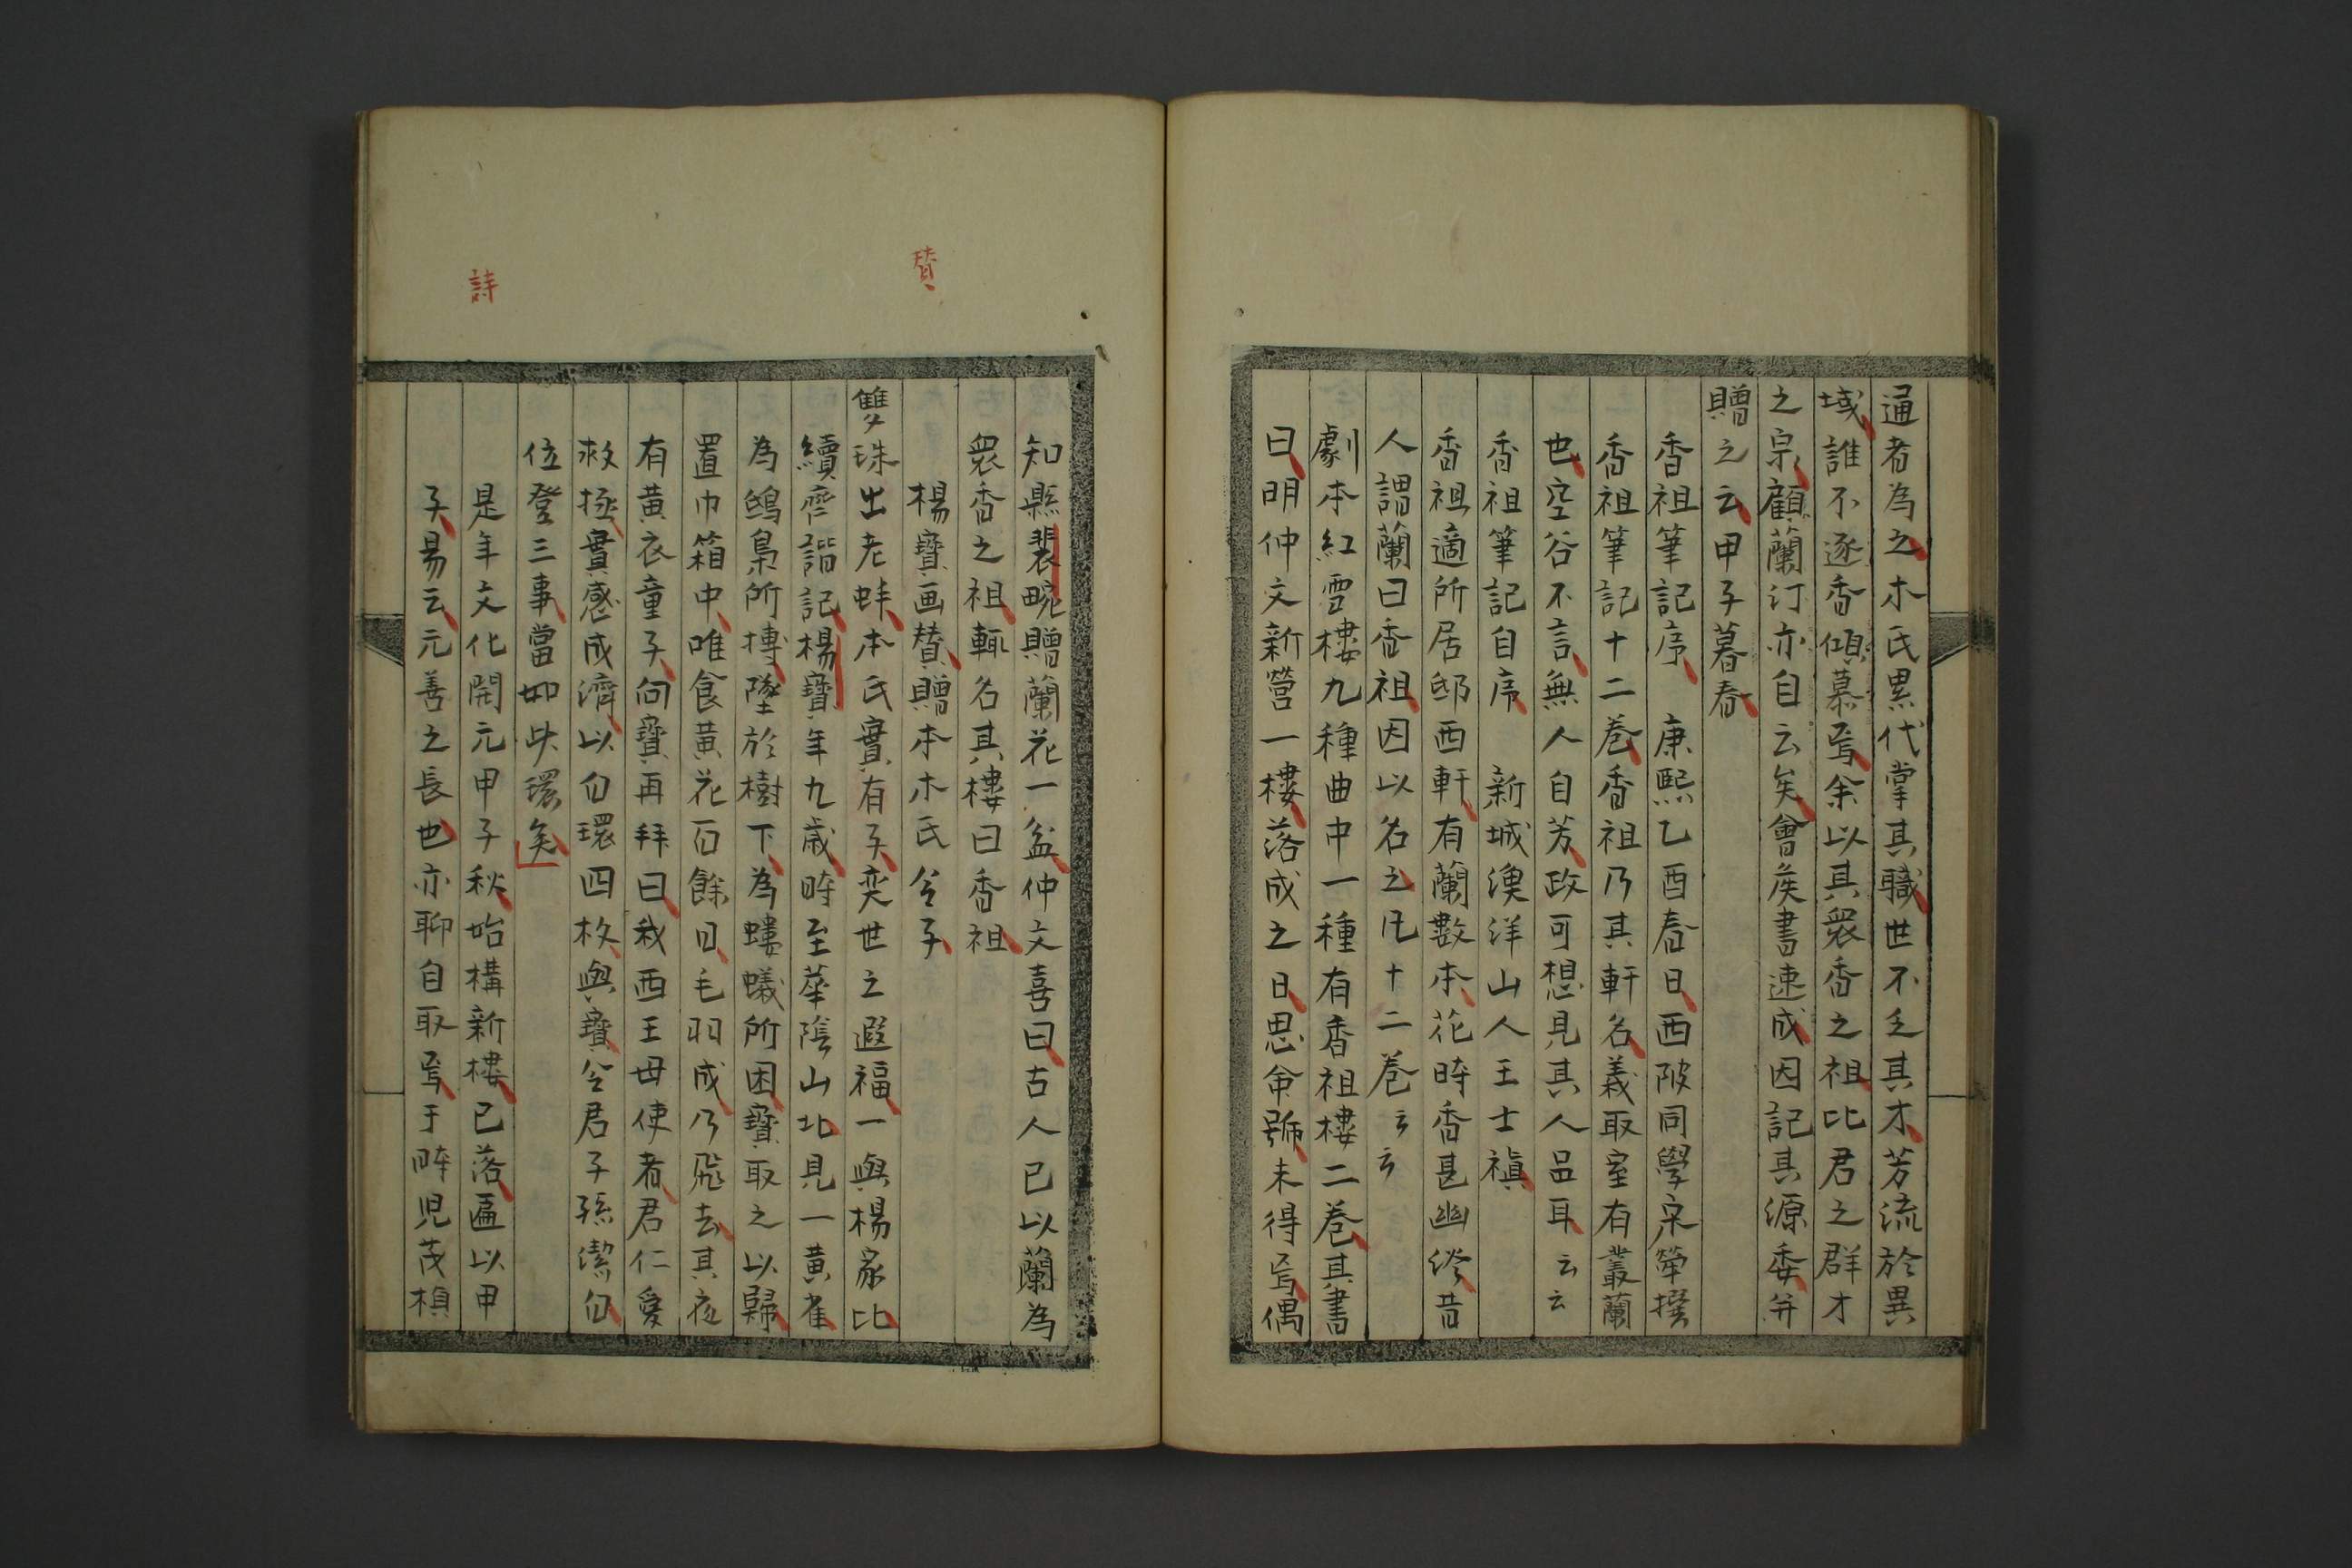 通者為之木氏累代掌其職世不乏其才芳流於異
域誰不逐香傾慕焉余以其衆香之祖比君之群才
之宗顧蘭汀亦自云矣會矦書速成因記其源委并
贈之云甲子暮春
香祖筆記序 康熙乙酉春日西陂同學宋犖撰
香祖筆記十二卷香祖乃其軒名義取室有叢蘭
也空谷不言無人自芳政可想見其人品耳云云
香祖筆記自序 新城漁洋山人王士禛
香祖適所居邸西軒有蘭數本花時香甚幽㣲昔
人謂蘭曰香祖因以名之凡十二卷云云
劇本紅雪樓九種曲中一種有香祖樓二卷其書
曰明仲文新營一樓落成之日思命號未得焉偶
知縣裴畹贈蘭花一盆仲文喜曰古人已以蘭為
衆香之祖輙名其樓曰香祖
賛
楊寶画賛贈本木氏令子
雙珠出老蚌本氏實有子奕世之遐福一與楊家比
續齊諧記楊寶年九歳時至華陰山北見一黄雀
為鴟梟所搏墜於樹下為螻蟻所困寶取之以歸
置巾箱中唯食黄花百餘日毛羽成乃飛去其夜
有黄衣童子向寶再拜曰我西王母使者君仁愛
救拯實感成濟以白環四枚與寶令君子孫潔白
位登三事當如此環矣
詩
是年文化開元甲子秋始構新樓已落匾以甲
子易云元善之長也亦聊自取焉于時児茂楨